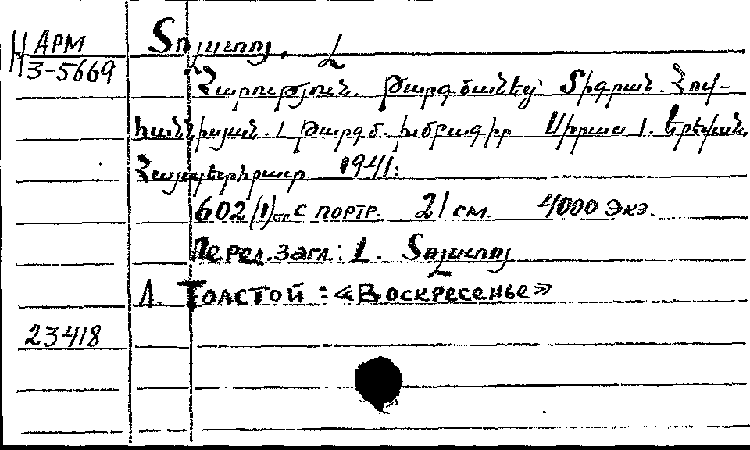 АРМ
3-5669
Տոլստոյ, Լ
Հարություն. Թարգմանեց՝ Տիգրան Հով-
հաննիսյան. Թարգմ. խմբագիր Երևան,
Հայպետհրատ 1941։
602(1)стр. с портр. 21 см. 4000 экз.
Перед. загл: Լ. Տոլստոյ
Л. Толстой: «Воскресенье»
23418